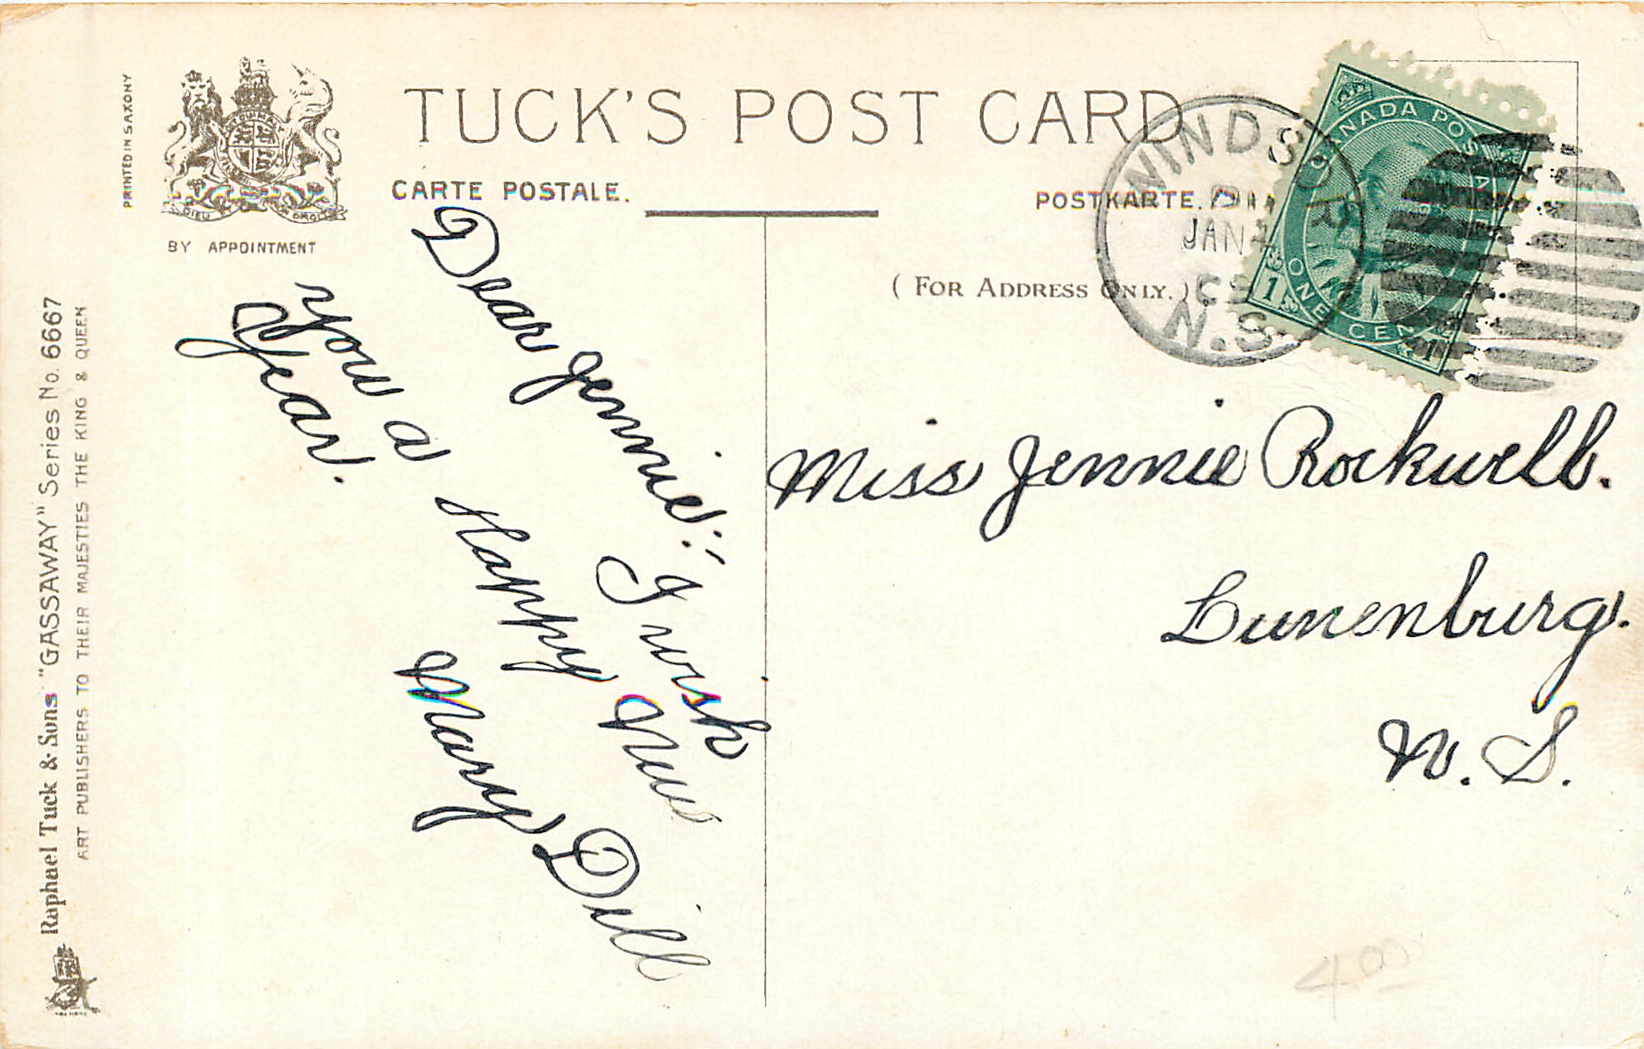 TUCK'S POST CARD
CARTE POSTALE.
POSTKARTE.
(FOR ADDRESS ONLY.)
PRINTED IN SAXONY
DIEU ET MON DROIT
BY APPOINTMENT
Raphael Tuck & Sons' "GASSAWAY" Series No. 6667
ART PUBLISHERS TO THEIR MAJESTIES THE KING & QUEEN
WINDSOR
PM
JAN 4
N.S.
CANADA POSTAGE
1 ONE CENT 1
Dear Jennie:
I wish
you a Happy New
Year.
Mary Dill
Miss Jennie Rockwell.
Lunenburg.
N. S.
4.00